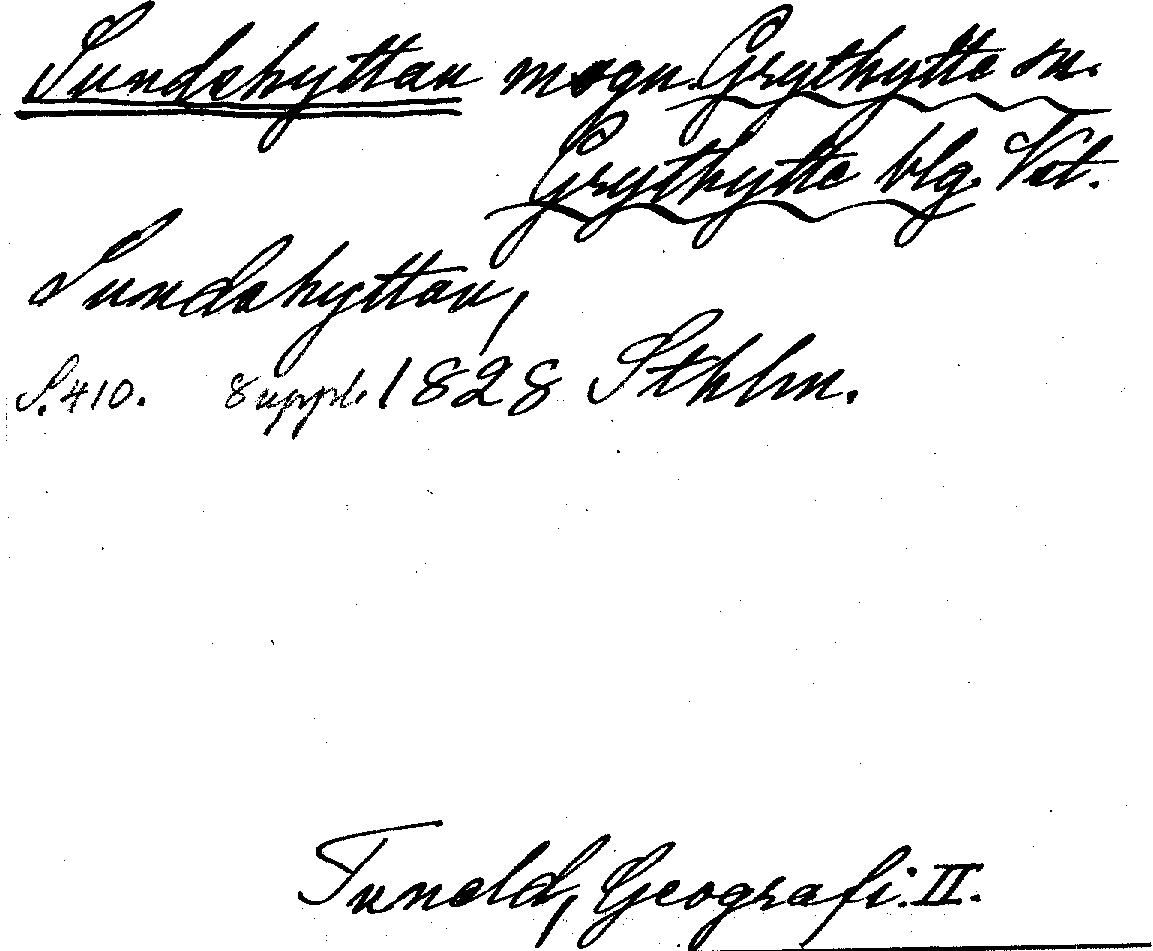 Sundshyttan msgn. Grythytte sn.
Grythytte blg. Vstm.
Sundshyttan,
S. 410. Suppl. 1828 Sthlm.
Tuneld, Geografi. II.